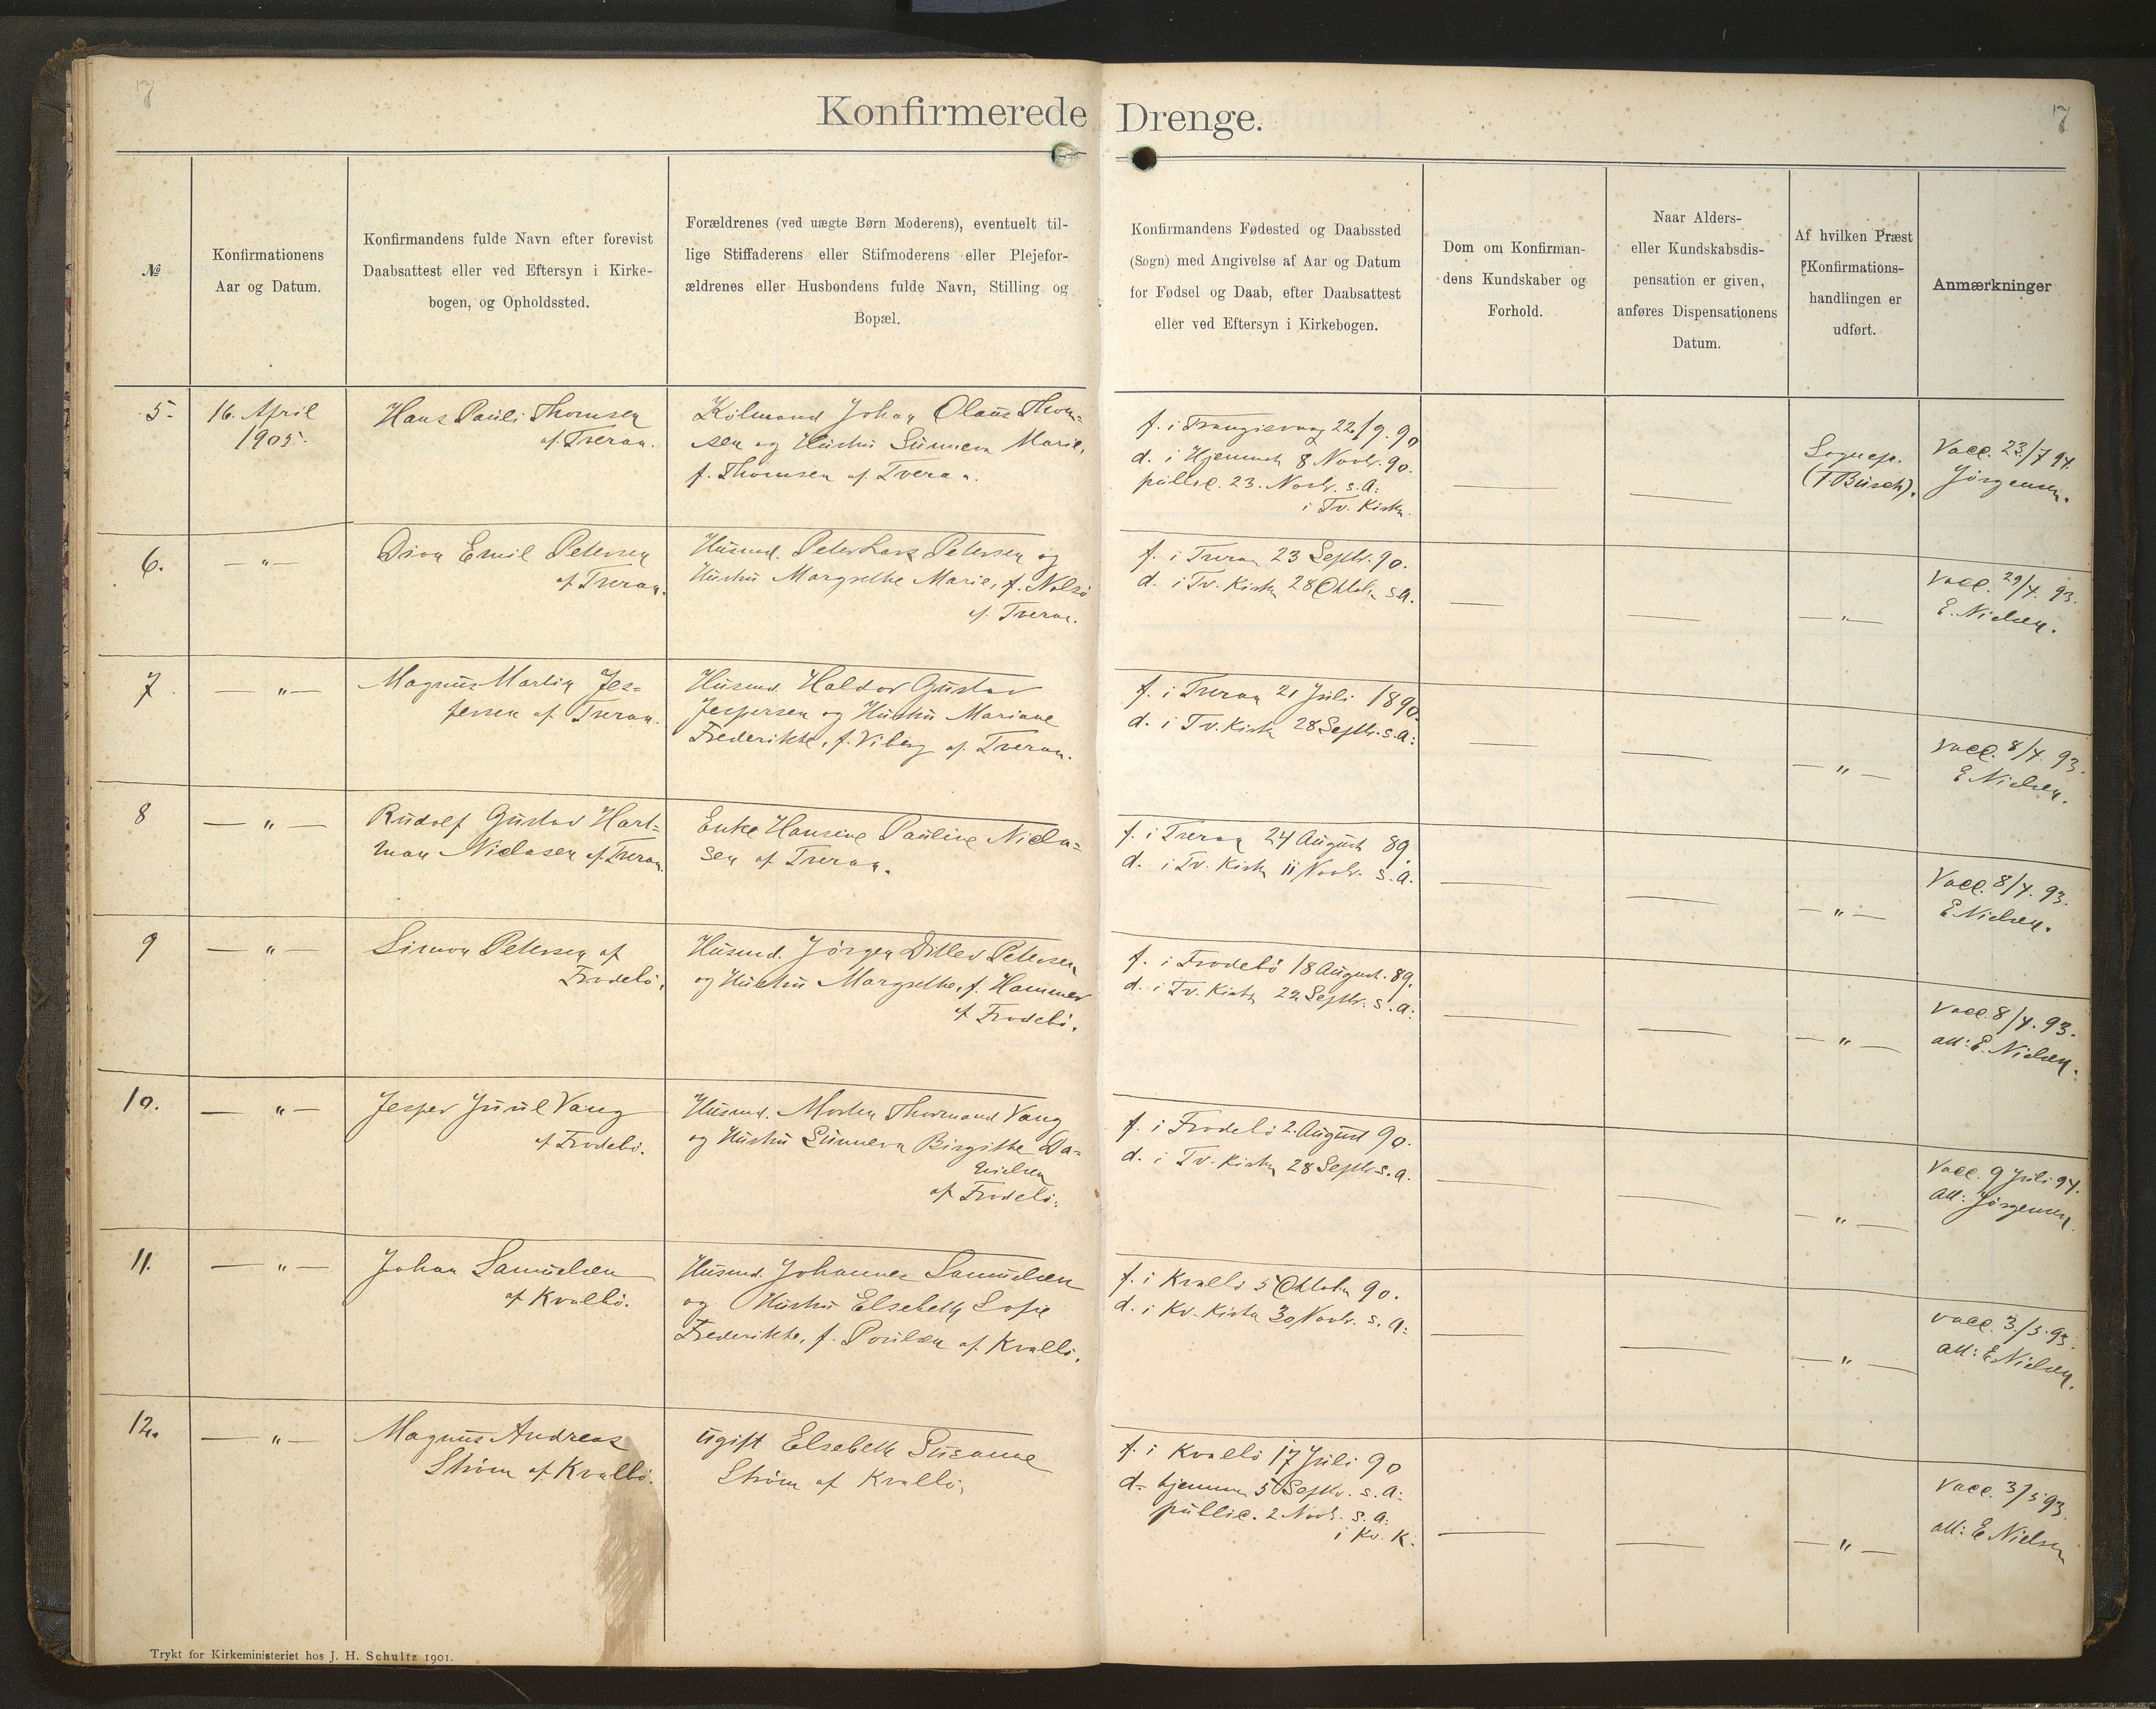 7
Konfirmerede Drenge.
7
№
Konfirmationens
Aar og Datum.
Konfirmandens fulde Navn efter forevist
Daabsattest eller ved Eftersyn i Kirke-
bogen, og Opholdssted.
Forældrenes (ved uægte Børn Moderens), eventuelt til-
lige Stiffaderens eller Stifmoderens eller Plejefor-
ældrenes eller Husbondens fulde Navn, Stilling og
Bopæl.
Konfirmandens Fødested og Daabssted
(Sogn) med Angivelse af Aar og Datum
for Fødsel og Daab, efter Daabsattest
eller ved Eftersyn i Kirkebogen.
Dom om Konfirman-
dens Kundskaber og
Forhold.
Naar Alders-
eller Kundskabsdis-
pensation er given,
anføres Dispensationens
Datum.
Af hvilken Præst
Konfirmations-
handlingen er
udført.
Anmærkninger
5.
16. April
1905.
Hans Pauli Thomsen
af Tveraa.
Kølmand Johan Olaus Thom-
sen og Hustru Sunneva Marie,
f. Thomsen af Tveraa.
f. i Trangisvaag 22/9. 90
d. i Hjemmet 8 Novbr. 90.
public. 23. Novbr. s. A:
i Tv. Kirke.
Sognepr.
(T. Busch).
Vacc. 23/7 94.
Jørgensen.
6.
— " —
Dion Emil Petersen
af Tveraa.
Husmd. Peter Lars Petersen og
Hustru Margrethe Marie, f. Nolsø
af Tveraa.
f. i Tveraa 23 Septbr. 90.
d. i Tv. Kirke 28 Oktober s.A.
— " —
Vacc. 29/4. 93.
E. Nielsen.
7
— " —
Magnus Martin Jes-
persen af Tveraa.
Husmd. Haldor Gustav
Jespersen og Hustru Mariane
Frederikke, f. Viberg af Tveraa.
f. i Tveraa 21 Juli 1890.
d. i Tv. Kirke 28 Septbr. s. A:
— " —
Vacc. 8/4. 93.
E Nielsen.
8
— " —
Rudolf Gustav Hart-
man Niclasen af Tveraa.
Enke Hansine Pauline Nicla-
sen af Tveraa.
f. i Tveraa 24 August 89.
d. i Tv. Kirke 11 Novbr. s. A.
— " —
Vacc. 8/4. 93.
E Nielsen.
9
— " —
Simon Petersen af
Frodebø.
Husmd. Jørgen Ditlev Petersen
og Hustru Margrethe, f. Hammer
af Frodebø.
f. i Frodebø 18 August. 89.
d. i Tv. Kirke 22 Septbr. s. A:
— " —
Vacc. 8/4. 93.
att: E. Nielsen.
10.
— " —
Jesper Juul Vang
af Frodebø.
Husmd. Morten Thormand Vang
og Hustru Sunneva Birgitthe Da-
nielsen
af Frodebø.
f. i Frodebø 2. August 90.
d. i Tv. Kirke 28 Septbr. s. A.
— " —
Vacc. 9 Juli 94.
att: Jørgensen
11.
— " —
Johan Samuelsen
af Kvalbø.
Husmd. Johannes Samuelsen
og Hustru Elsebeth Sofie
Frederikke, f. Poulsen af Kvalbø.
f. i Kvalbø 5 Oktober 90.
d. i Kv. Kirke 30 Novbr. s. A:
— " —
Vacc. 3/5. 93.
att: E Nielsen.
12.
— " —
Magnus Andreas
Strøm af Kvalbø.
Ugift Elsebeth Susanne
Strøm af Kvalbø,
f. i Kvalbø 17 Juli 90
d. hjemme 5 Septbr. s. A:
public. 2 Novbr. s. A:
i Kv. K.
— " —
Vacc. 3/5 93.
att: E Nielsen
Trykt for Kirkeministeriet hos J. H. Schultz 1901.